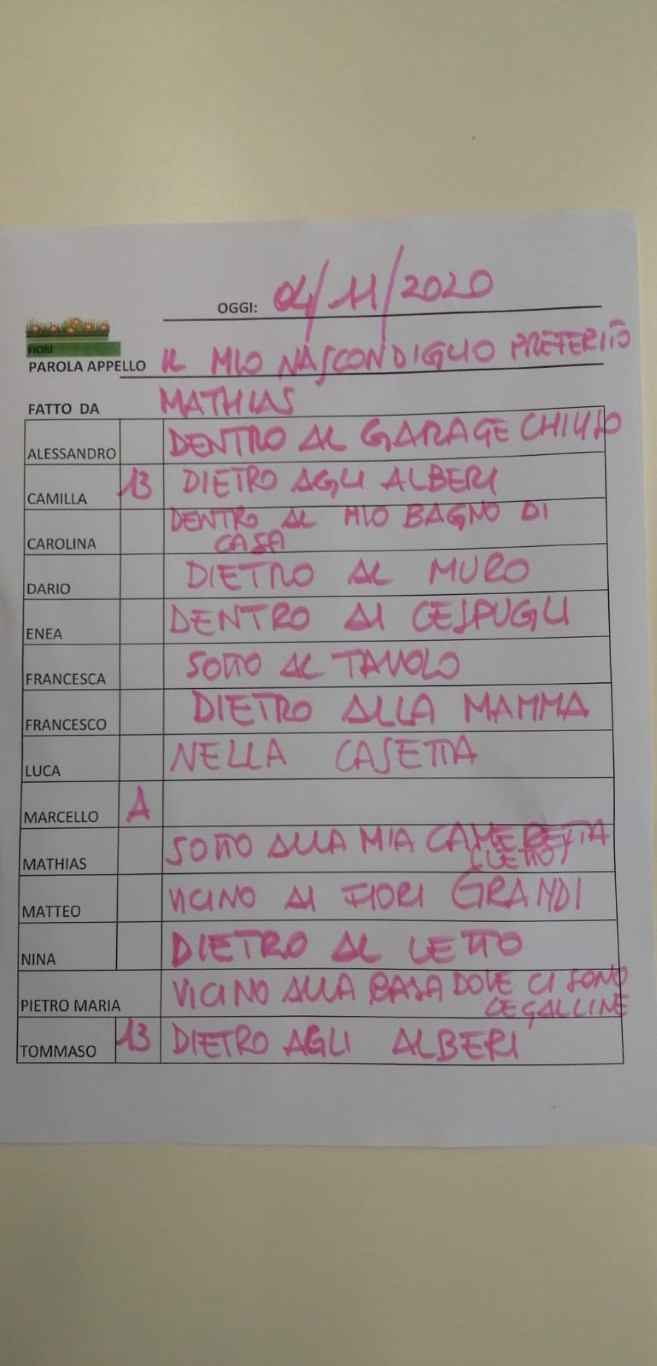 OGGI: 04/11/2020
FIORI
PAROLA APPELLO IL MIO NASCONDIGLIO PREFERITO
FATTO DA MATHIAS
ALESSANDRO DENTRO AL GARAGE CHIUSO
CAMILLA 13 DIETRO AGLI ALBERI
CAROLINA DENTRO AL MIO BAGNO DI
CASA
DARIO DIETRO AL MURO
ENEA DENTRO AI CESPUGLI
FRANCESCA SOTTO AL TAVOLO
FRANCESCO DIETRO ALLA MAMMA
LUCA NELLA CASETTA
MARCELLO A
MATHIAS SOTTO ALLA MIA CAMERETTA
(LETTO)
MATTEO VICINO AI FIORI GRANDI
NINA DIETRO AL LETTO
PIETRO MARIA VICINO ALLA BASA DOVE CI SONO
LE GALLINE
TOMMASO 13 DIETRO AGLI ALBERI